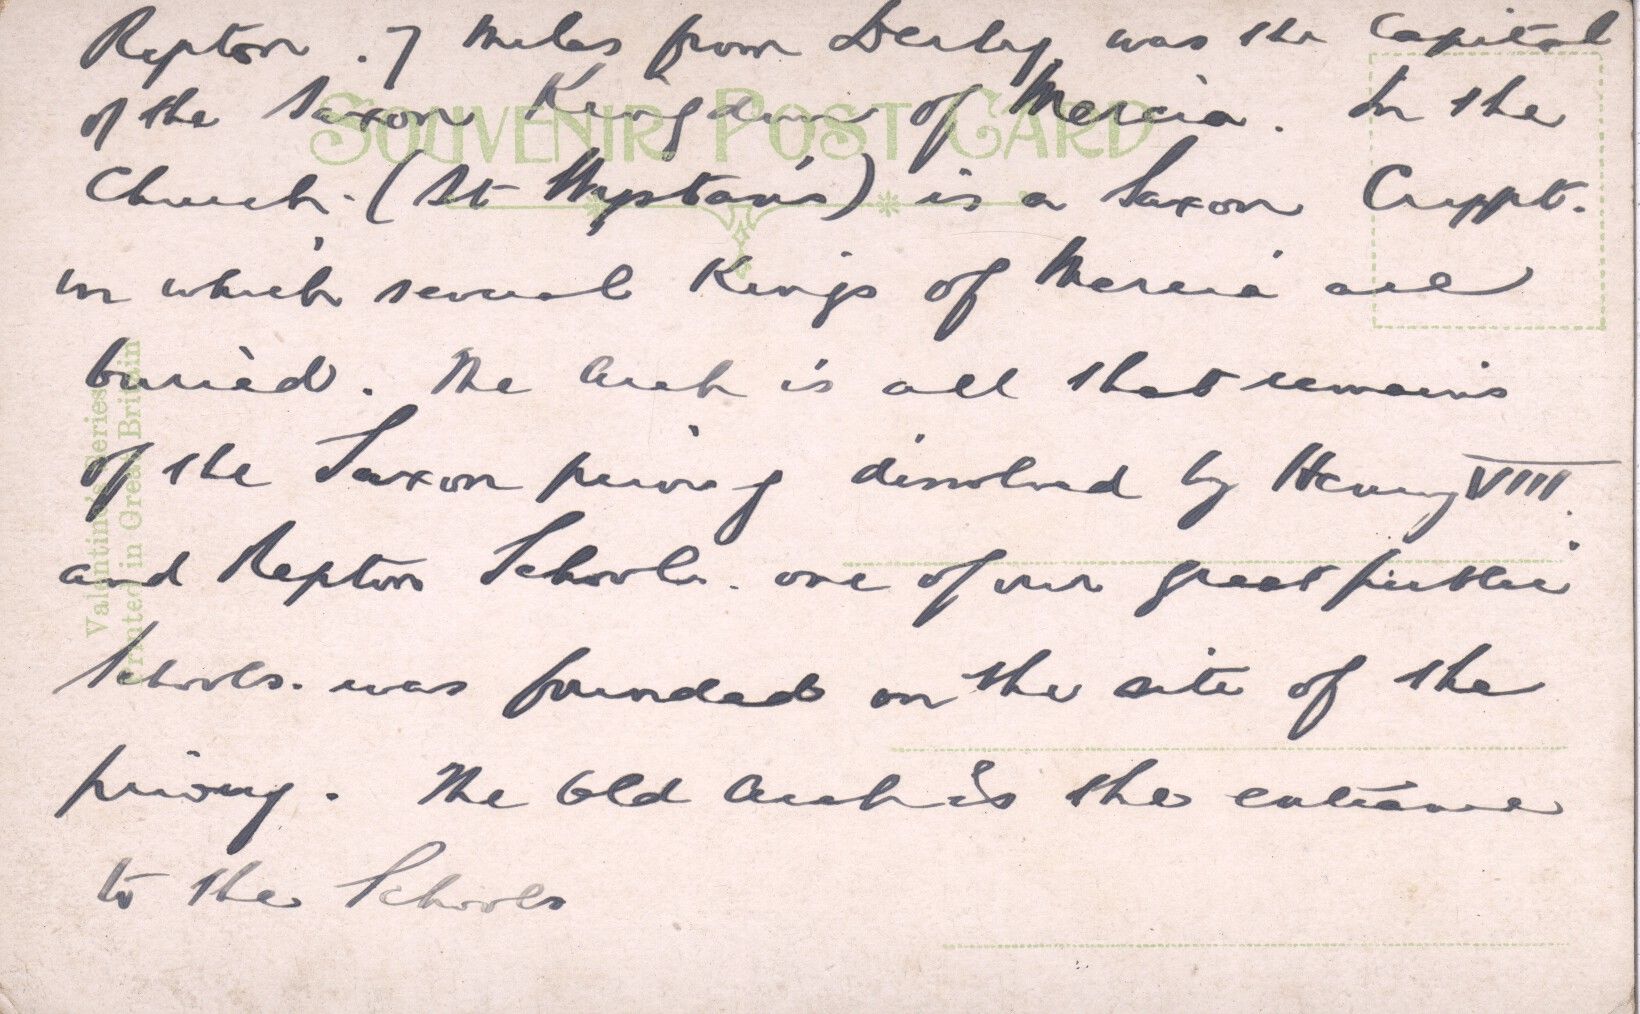 Repton. 7 miles from Derby was the Capital
of the Saxon Kingdom of Mercia. In the
SOUVENIR POST CARD
Church. (St Wystan's) is a Saxon Crypt.
in which several Kings of Mercia are
buried. The Arch is all that remains
of the Saxon priory dissolved by Henry VIII.
and Repton Schools. one of our great public
Schools. was founded on the site of the
priory. The Old Arch is the entrance
to the Schools
Valentine's Series
Printed in Great Britain